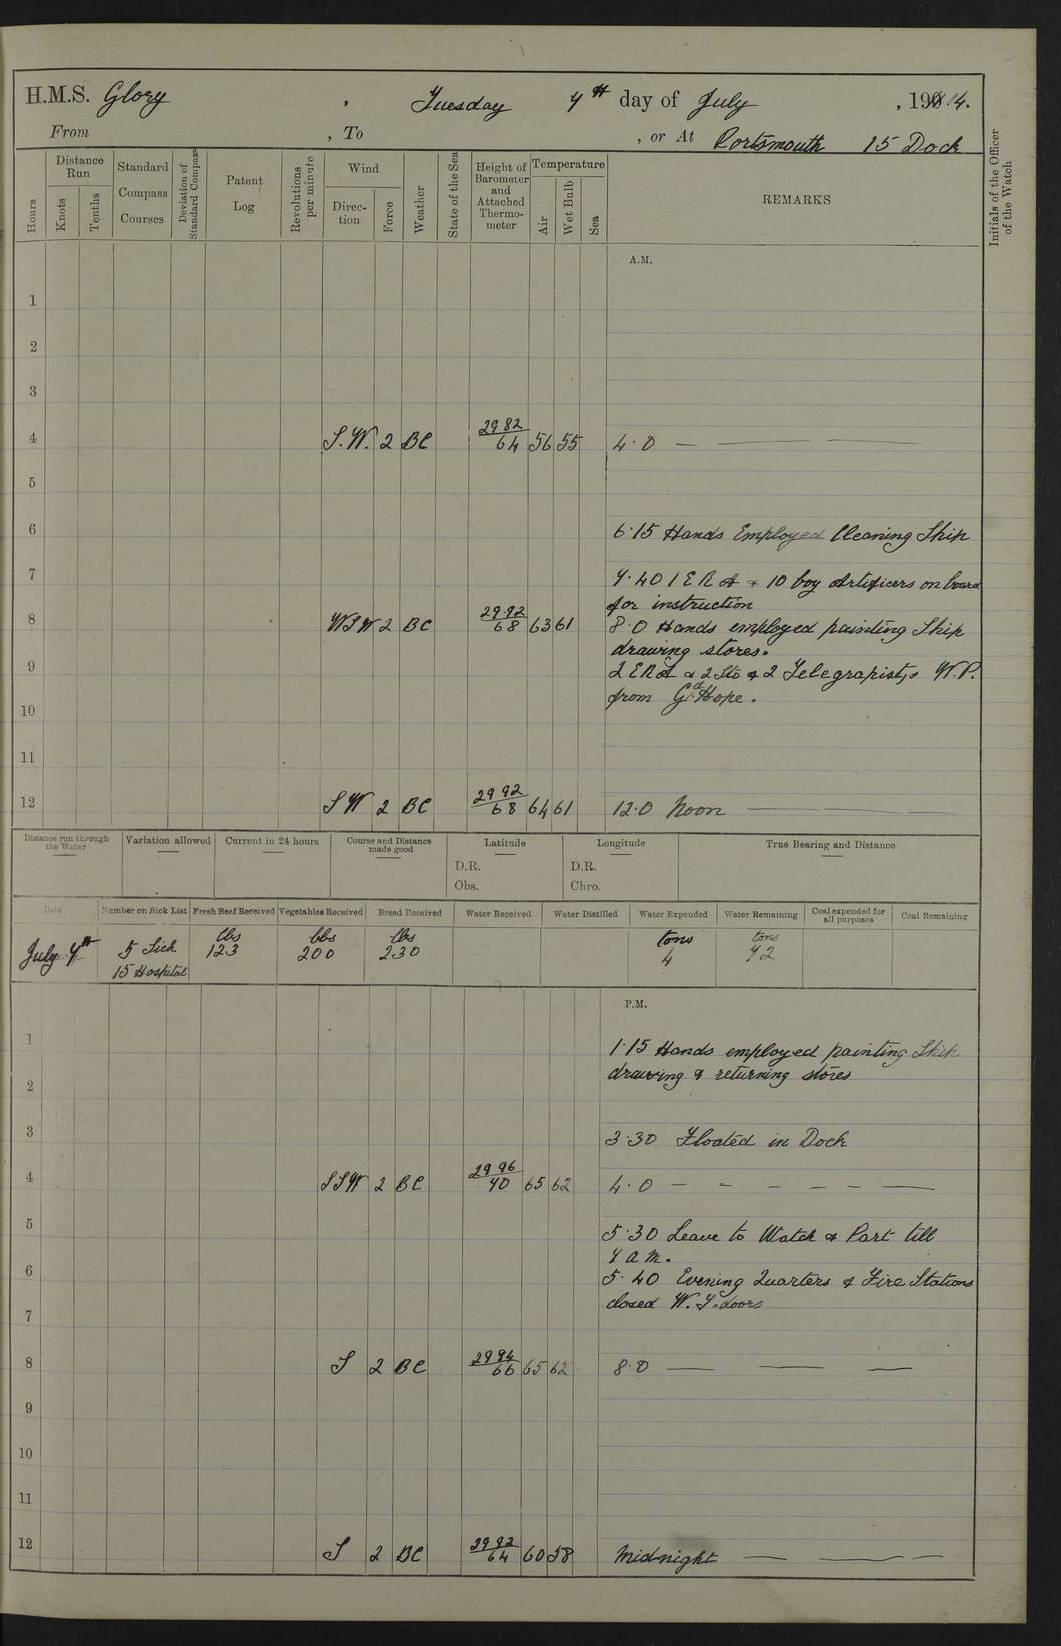 H.M.S. Glory , Tuesday 7th day of July , 1914.
From , To , or At Portsmouth 15 Dock
Hours
Distance Run
Knots
Tenths
Standard Compass Courses
Deviation of Standard Compass
Patent Log
Revolutions per minute
Wind
Direction
Force
Weather
State of the Sea
Height of Barometer and Attached Thermometer
Temperature
Air
Wet Bulb
Sea
REMARKS
Initials of the Officer of the Watch
A.M.
1
2
3
4 S.W. 2 BC 29 82/64 56 55 4.0
5
6 6.15 Hands Employed Cleaning Ship
7 7.40 1 ERA + 10 boy Artificers on board
for instruction
8 WSW 2 BC 29.92/68 63 61 8.0 Hands employed painting Ship
drawing stores.
9 2 ERA & 2 Sto & 2 Telegraphists W.P.
from Gd Hope.
10
11
12 SW 2 BC 29 92/68 64 61 12.0 Noon
Distance run through the Water
Variation allowed
Current in 24 hours
Course and Distance made good
Latitude
D.R.
Obs.
Longitude
D.R.
Chro.
True Bearing and Distance
Date Number on Sick List Fresh Beef Received Vegetables Received Bread Received Water Received Water Distilled Water Expended Water Remaining Coal expended for all purposes Coal Remaining
lbs lbs lbs tons tons
July 7th 5 Sick 123 200 230 4 72
15 Hospital
P.M.
1 1.15 Hands employed painting Ship
2 drawing & returning stores
3 3.30 Floated in Dock
4 SSW 2 BC 29 96/70 65 62 4.0
5 5.30 Leave to Watch & Part till
7 am.
6 5.40 Evening Quarters & Fire Stations
closed W.T. doors
7
8 S 2 BC 29 94/66 65 62 8.0
9
10
11
12 S 2 BC 29 92/64 60 58 Midnight